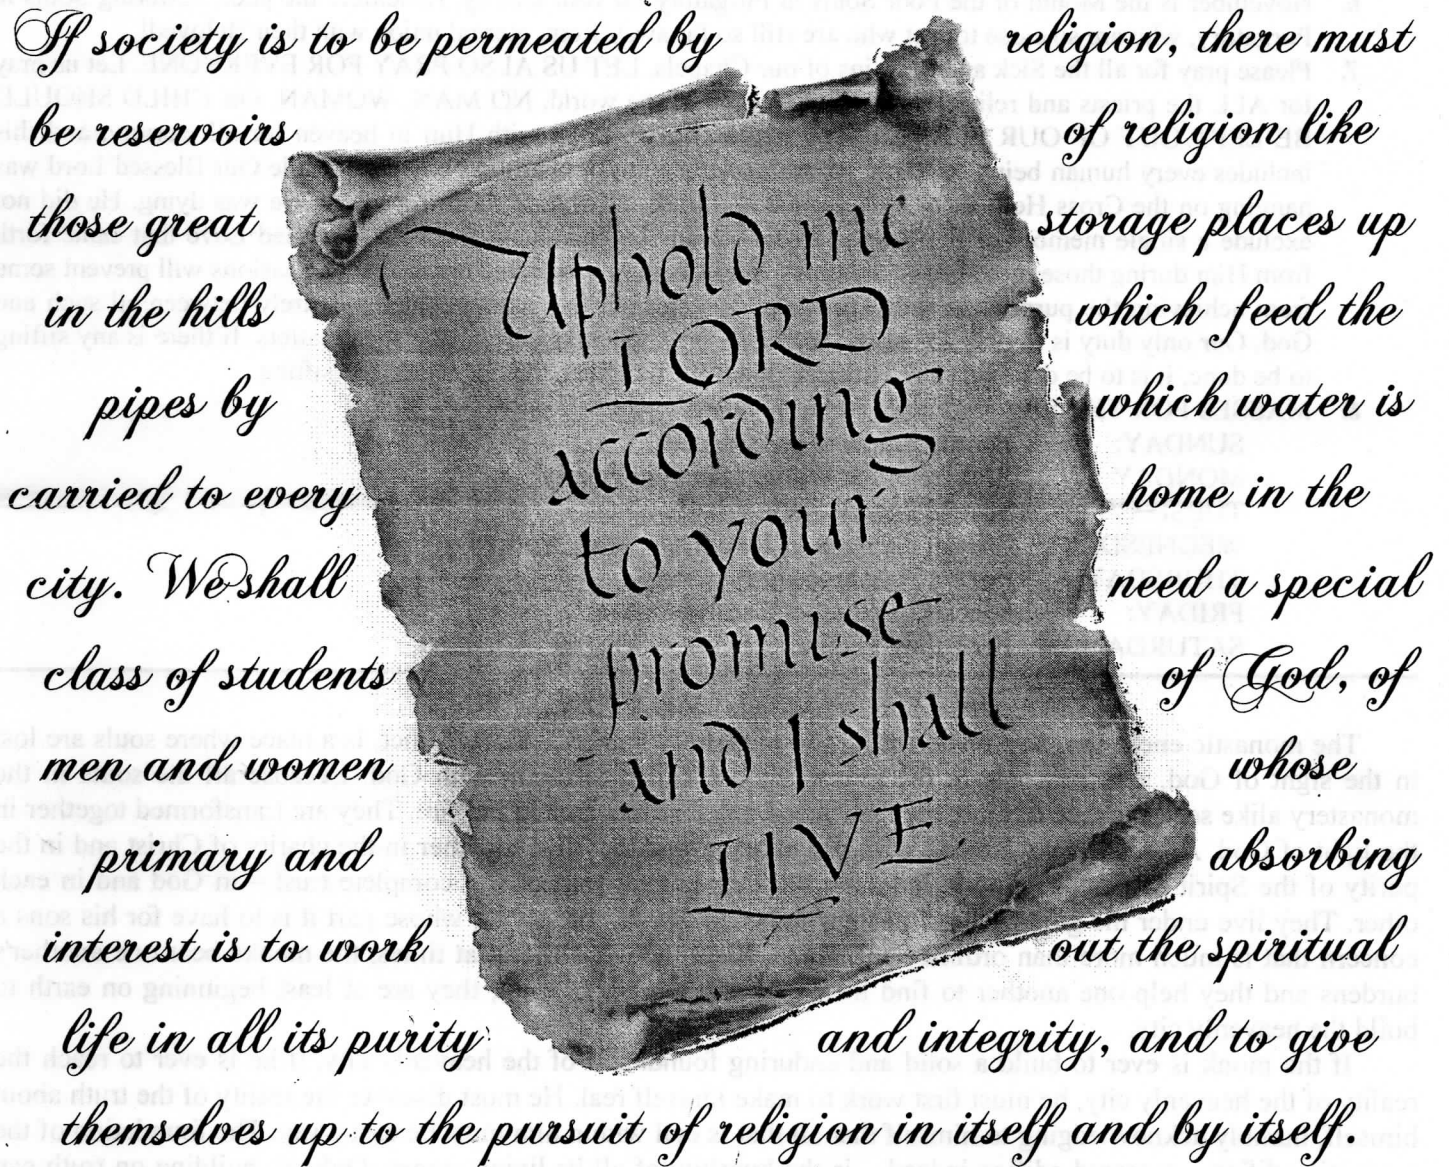 If society is to be permeated by religion, there must
be reservoirs of religion like
those great storage places up
in the hills which feed the
pipes by which water is
carried to every home in the
city. We shall need a special
class of students of God, of
men and women whose
primary and absorbing
interest is to work out the spiritual
life in all its purity and integrity, and to give
themselves up to the pursuit of religion in itself and by itself.
Uphold me
LORD
according
to your
promise
and I shall
LIVE